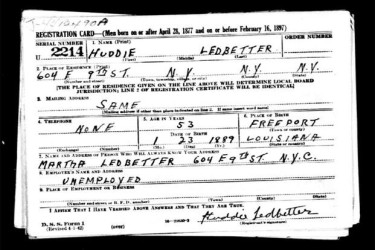 REGISTRATION CARD—(Men born on or after April 28, 1877 and on or before February 16, 1897)
SERIAL NUMBER 1. NAME (Print) ORDER NUMBER
U 2214 HUDDIE LEDBETTER
(First) (Middle) (Last)
2. PLACE OF RESIDENCE (Print)
604 E 9TH ST. N.Y. N.Y. N.Y.
(Number and street) (Town, township, village, or city) (County) (State)
[THE PLACE OF RESIDENCE GIVEN ON THE LINE ABOVE WILL DETERMINE LOCAL BOARD
JURISDICTION; LINE 2 OF REGISTRATION CERTIFICATE WILL BE IDENTICAL]
3. MAILING ADDRESS
SAME
[Mailing address if other than place indicated on line 2. If same insert word same]
4. TELEPHONE 5. AGE IN YEARS 6. PLACE OF BIRTH
NONE 53 FREEPORT
DATE OF BIRTH (Town or county)
1 23 1889 LOUISIANA
(Exchange) (Number) (Mo.) (Day) (Yr.) (State or country)
7. NAME AND ADDRESS OF PERSON WHO WILL ALWAYS KNOW YOUR ADDRESS
MARTHA LEDBETTER 604 E 9TH ST. N.Y.C.
8. EMPLOYER'S NAME AND ADDRESS
UNEMPLOYED
9. PLACE OF EMPLOYMENT OR BUSINESS
(Number and street or R. F. D. number) (Town) (County) (State)
I AFFIRM THAT I HAVE VERIFIED ABOVE ANSWERS AND THAT THEY ARE TRUE.
D. S. S. Form 1
(Revised 4-1-42) (over) Huddie Ledbetter